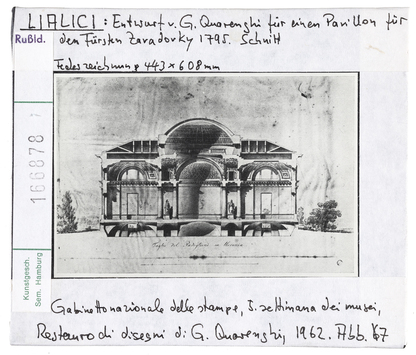 LIALICI: Entwurf v. G. Quarenghi für einen Pavillon für
Rußld.
den Fürsten Zavadovky 1795. Schnitt
Federzeichnung 443 x 608 mm
166878
Kunstgesch.
Sem. Hamburg
Gabinetto nazionale delle stampe, 5. settimana dei musei,
Restauro di disegni di G. Quarenghi, 1962. Abb. 67